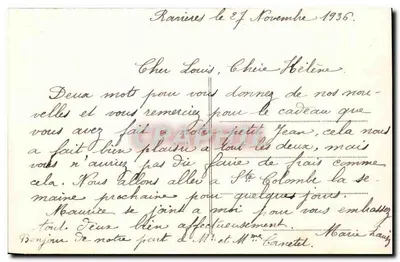 Ravières le 27 Novembre 1936.
Cher Louis, Chère Hélène
Deux mot pour vous donnez de nos nou-
velles et vous remerciez pour le cadeau que
vous avez fait petit Jean, cela nous
a fait bien plaisir a tout les deux, mais
vous n'auriez pas dû faire de frais comme
cela. Nous allons aller a Ste Colombe la se-
maine prochaine pour quelques jours.
Maurice se joint a moi pour vous embrassez
tout deux bien affectueusement.
Marie
Bonjour de notre part a Mr et Mme